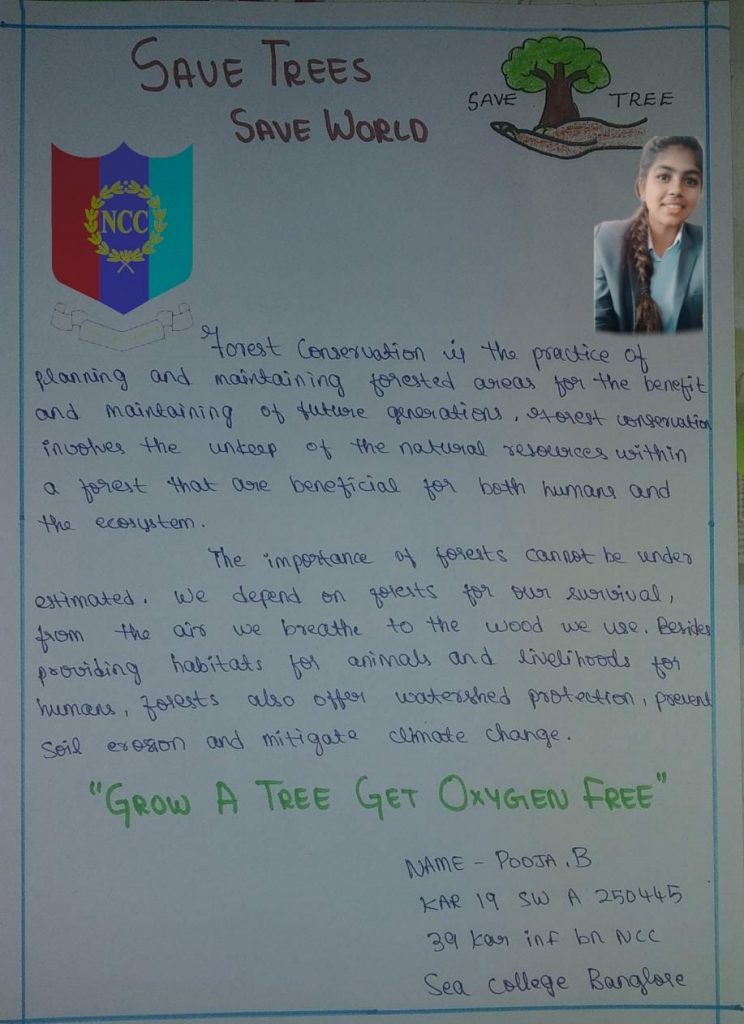 SAVE TREES
SAVE WORLD
SAVE TREE
NCC
Forest Conservation is the practice of
planning and maintaining forested areas for the benefit
and maintaining of future generations. Forest conservation
involves the unkeep of the natural resources within
a forest that are beneficial for both humans and
the ecosystem.
The importance of forests cannot be under
estimated. We depend on forests for our survival,
from the air we breathe to the wood we use. Besides
providing habitats for animals and livelihoods for
humans, forests also offer watershed protection, prevent
soil erosion and mitigate climate change.
"GROW A TREE GET OXYGEN FREE"
NAME - POOJA.B
KAR 19 SW A 250445
39 Kar inf bn NCC
Sea college Banglore